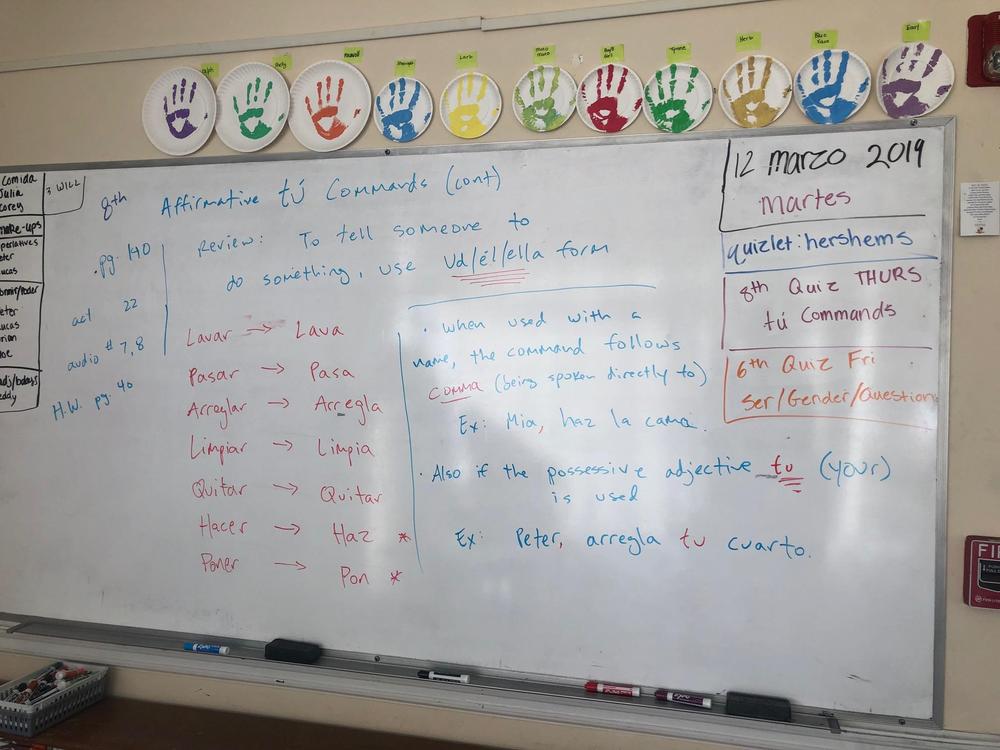 Herb
Earl
Comida
Julia
Corey
make-ups
3. WILL
8th
Affirmative tú Commands (cont)
Review: To tell someone to
do something, use Ud/él/ella form
.pg. 140
act 22
audio # 7,8
H.W. pg. 40
Lavar → Lava
Pasar → Pasa
Arreglar → Arregla
Limpiar → Limpia
Quitar → Quitar
Hacer → Haz *
Poner → Pon *
· When used with a
name, the command follows
comma (being spoken directly to)
Ex: Mia, haz la cama.
· Also if the possessive adjective tu (your)
is used
Ex: Peter, arregla tu cuarto.
12 marzo 2019
martes
quizlet: hershems
8th Quiz THURS
tú Commands
6th Quiz Fri
Ser/Gender/Question
FI